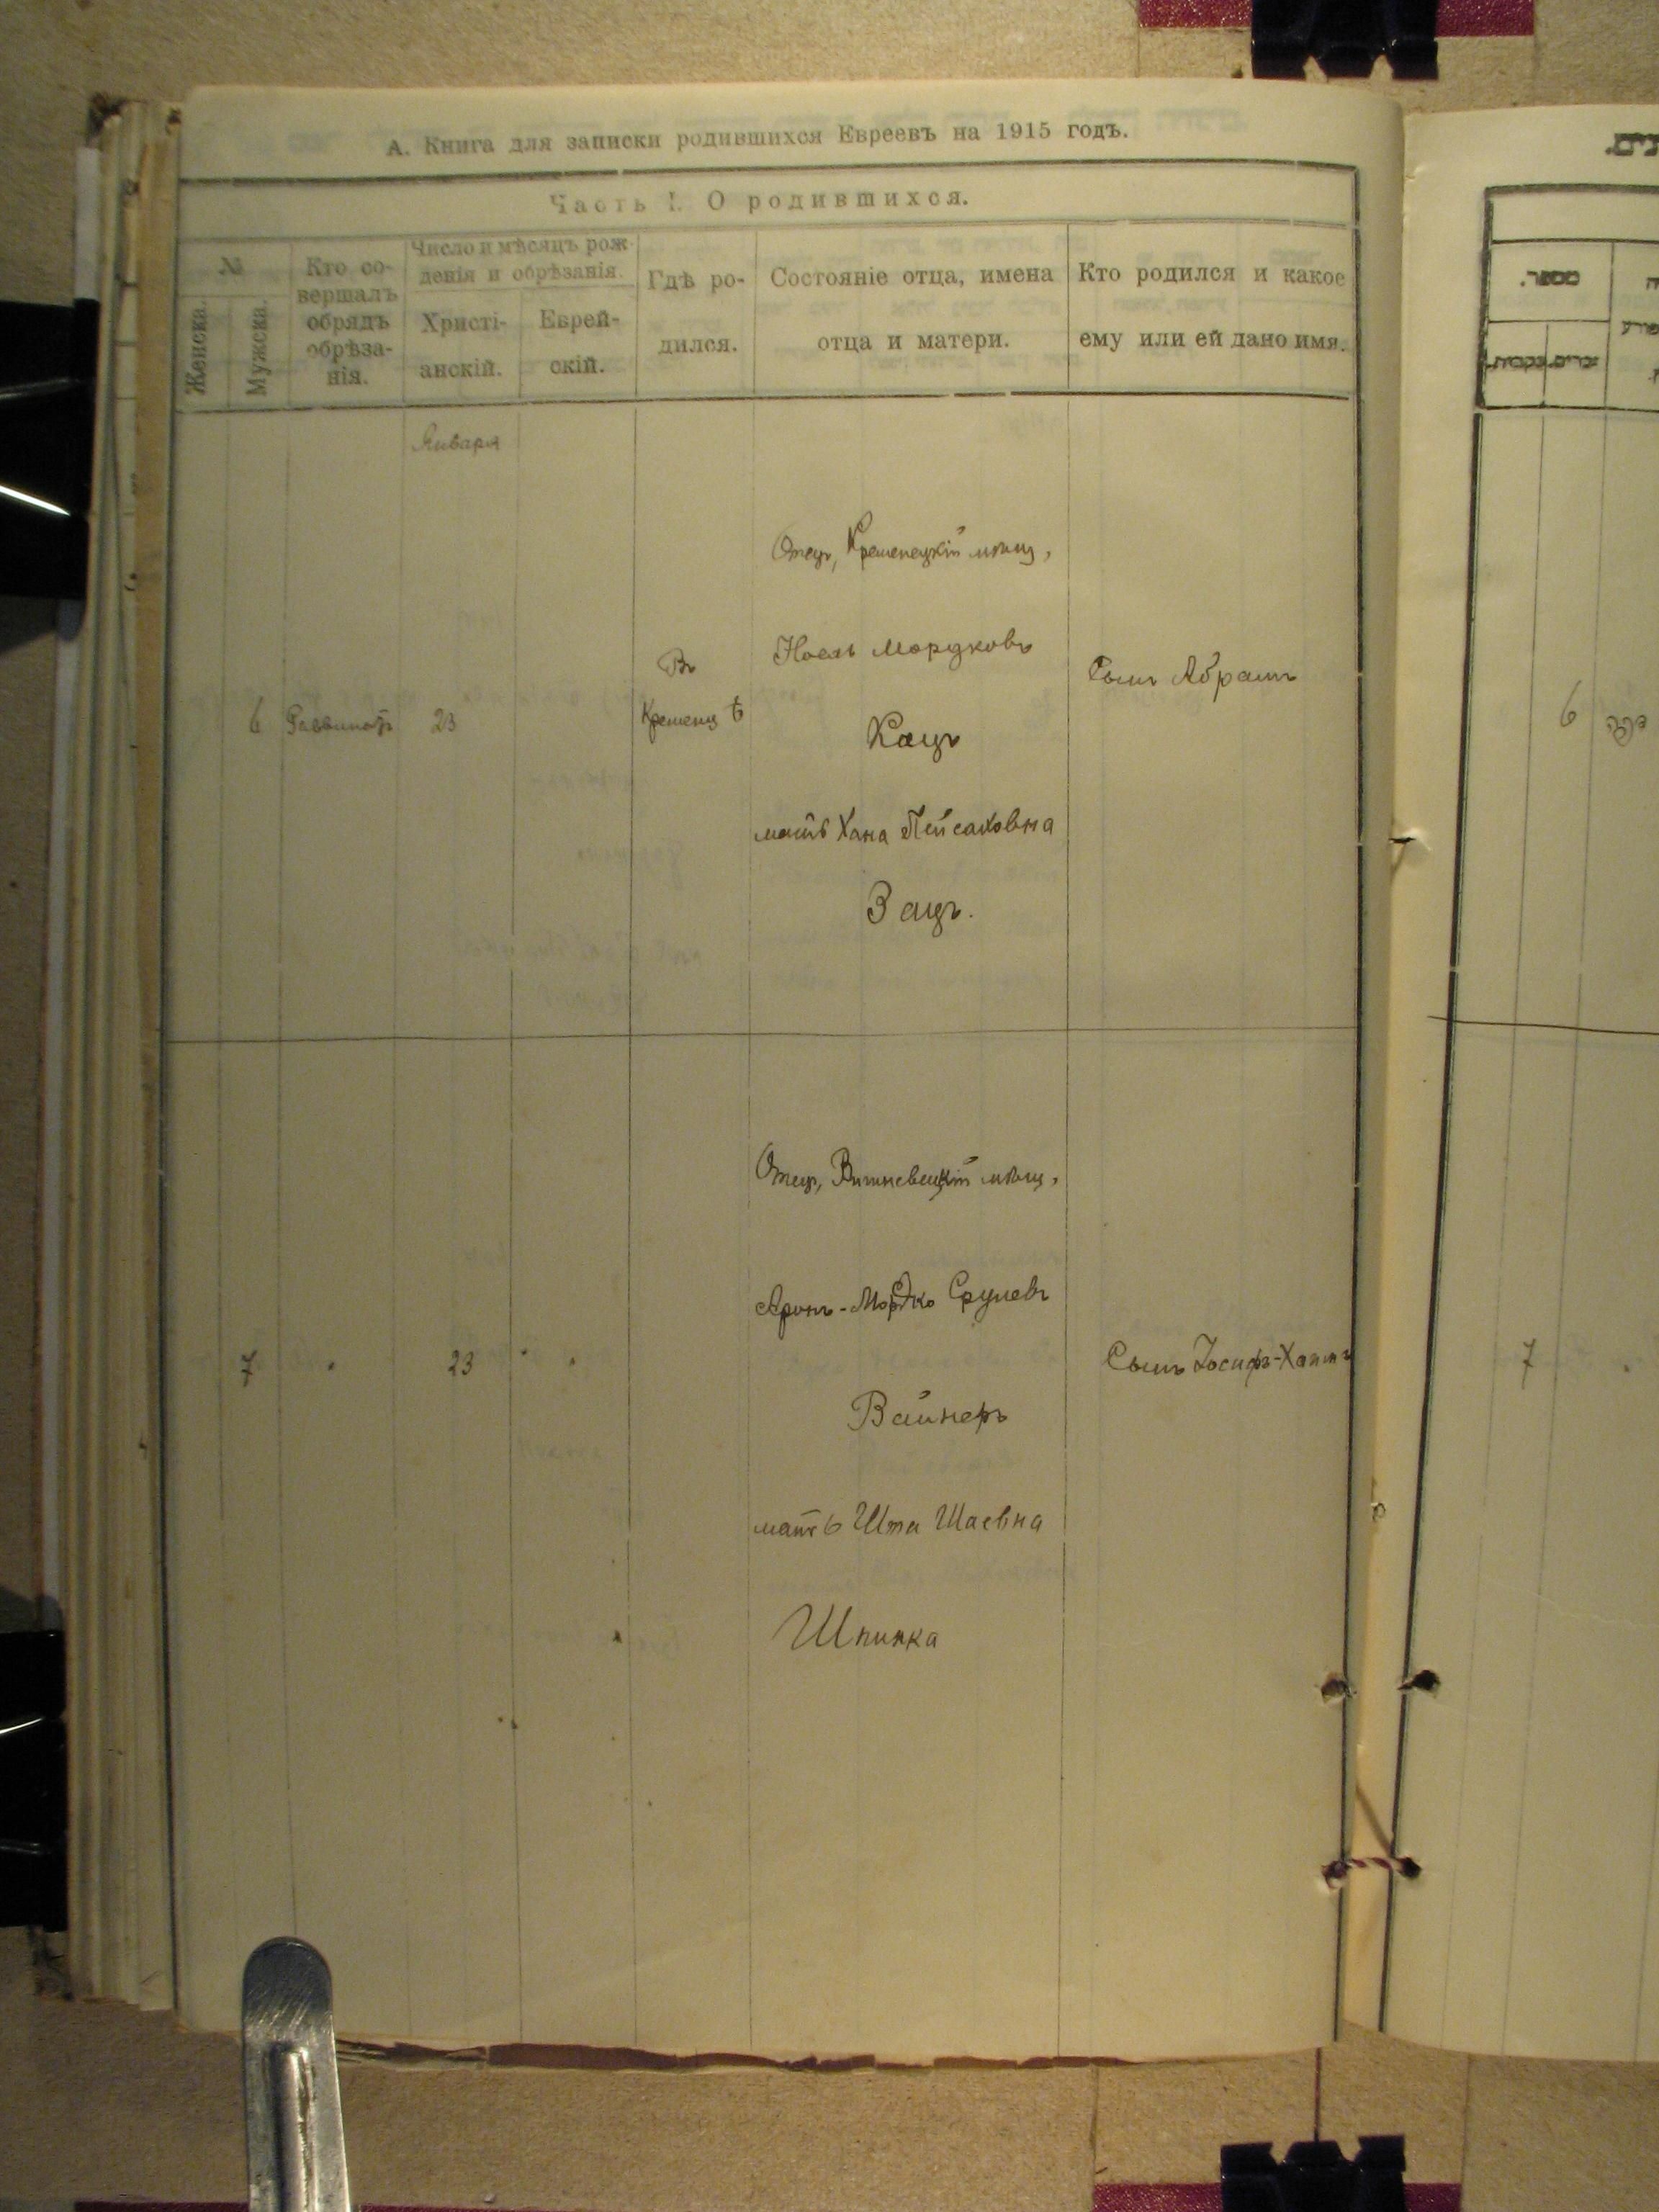 А. Книга для записки родившихся Евреевъ на 1915 годъ.
Часть I. О родившихся.
№
Женска.
Мужска.
Кто со-
вершалъ
обрядъ
обрѣза-
нія.
Число и мѣсяцъ рож-
денія и обрѣзанія.
Христі-
анскій.
Еврей-
скій.
Гдѣ ро-
дился.
Состояніе отца, имена
отца и матери.
Кто родился и какое
ему или ей дано имя.
Января
6
23
Въ
Кременцѣ
Отецъ, Кременецкій мѣщ,
Мордковъ
Кацъ
мать Хана Пейсаховна
Зацъ.
Сынъ Абрамъ
6
7
23
Отецъ, Вишневецкій мѣщ,
Аронъ-Мордко Срулевъ
Вайнеръ
мать Ита Шаевна
Шпинка
Сынъ Іосифъ-Хаимъ
7